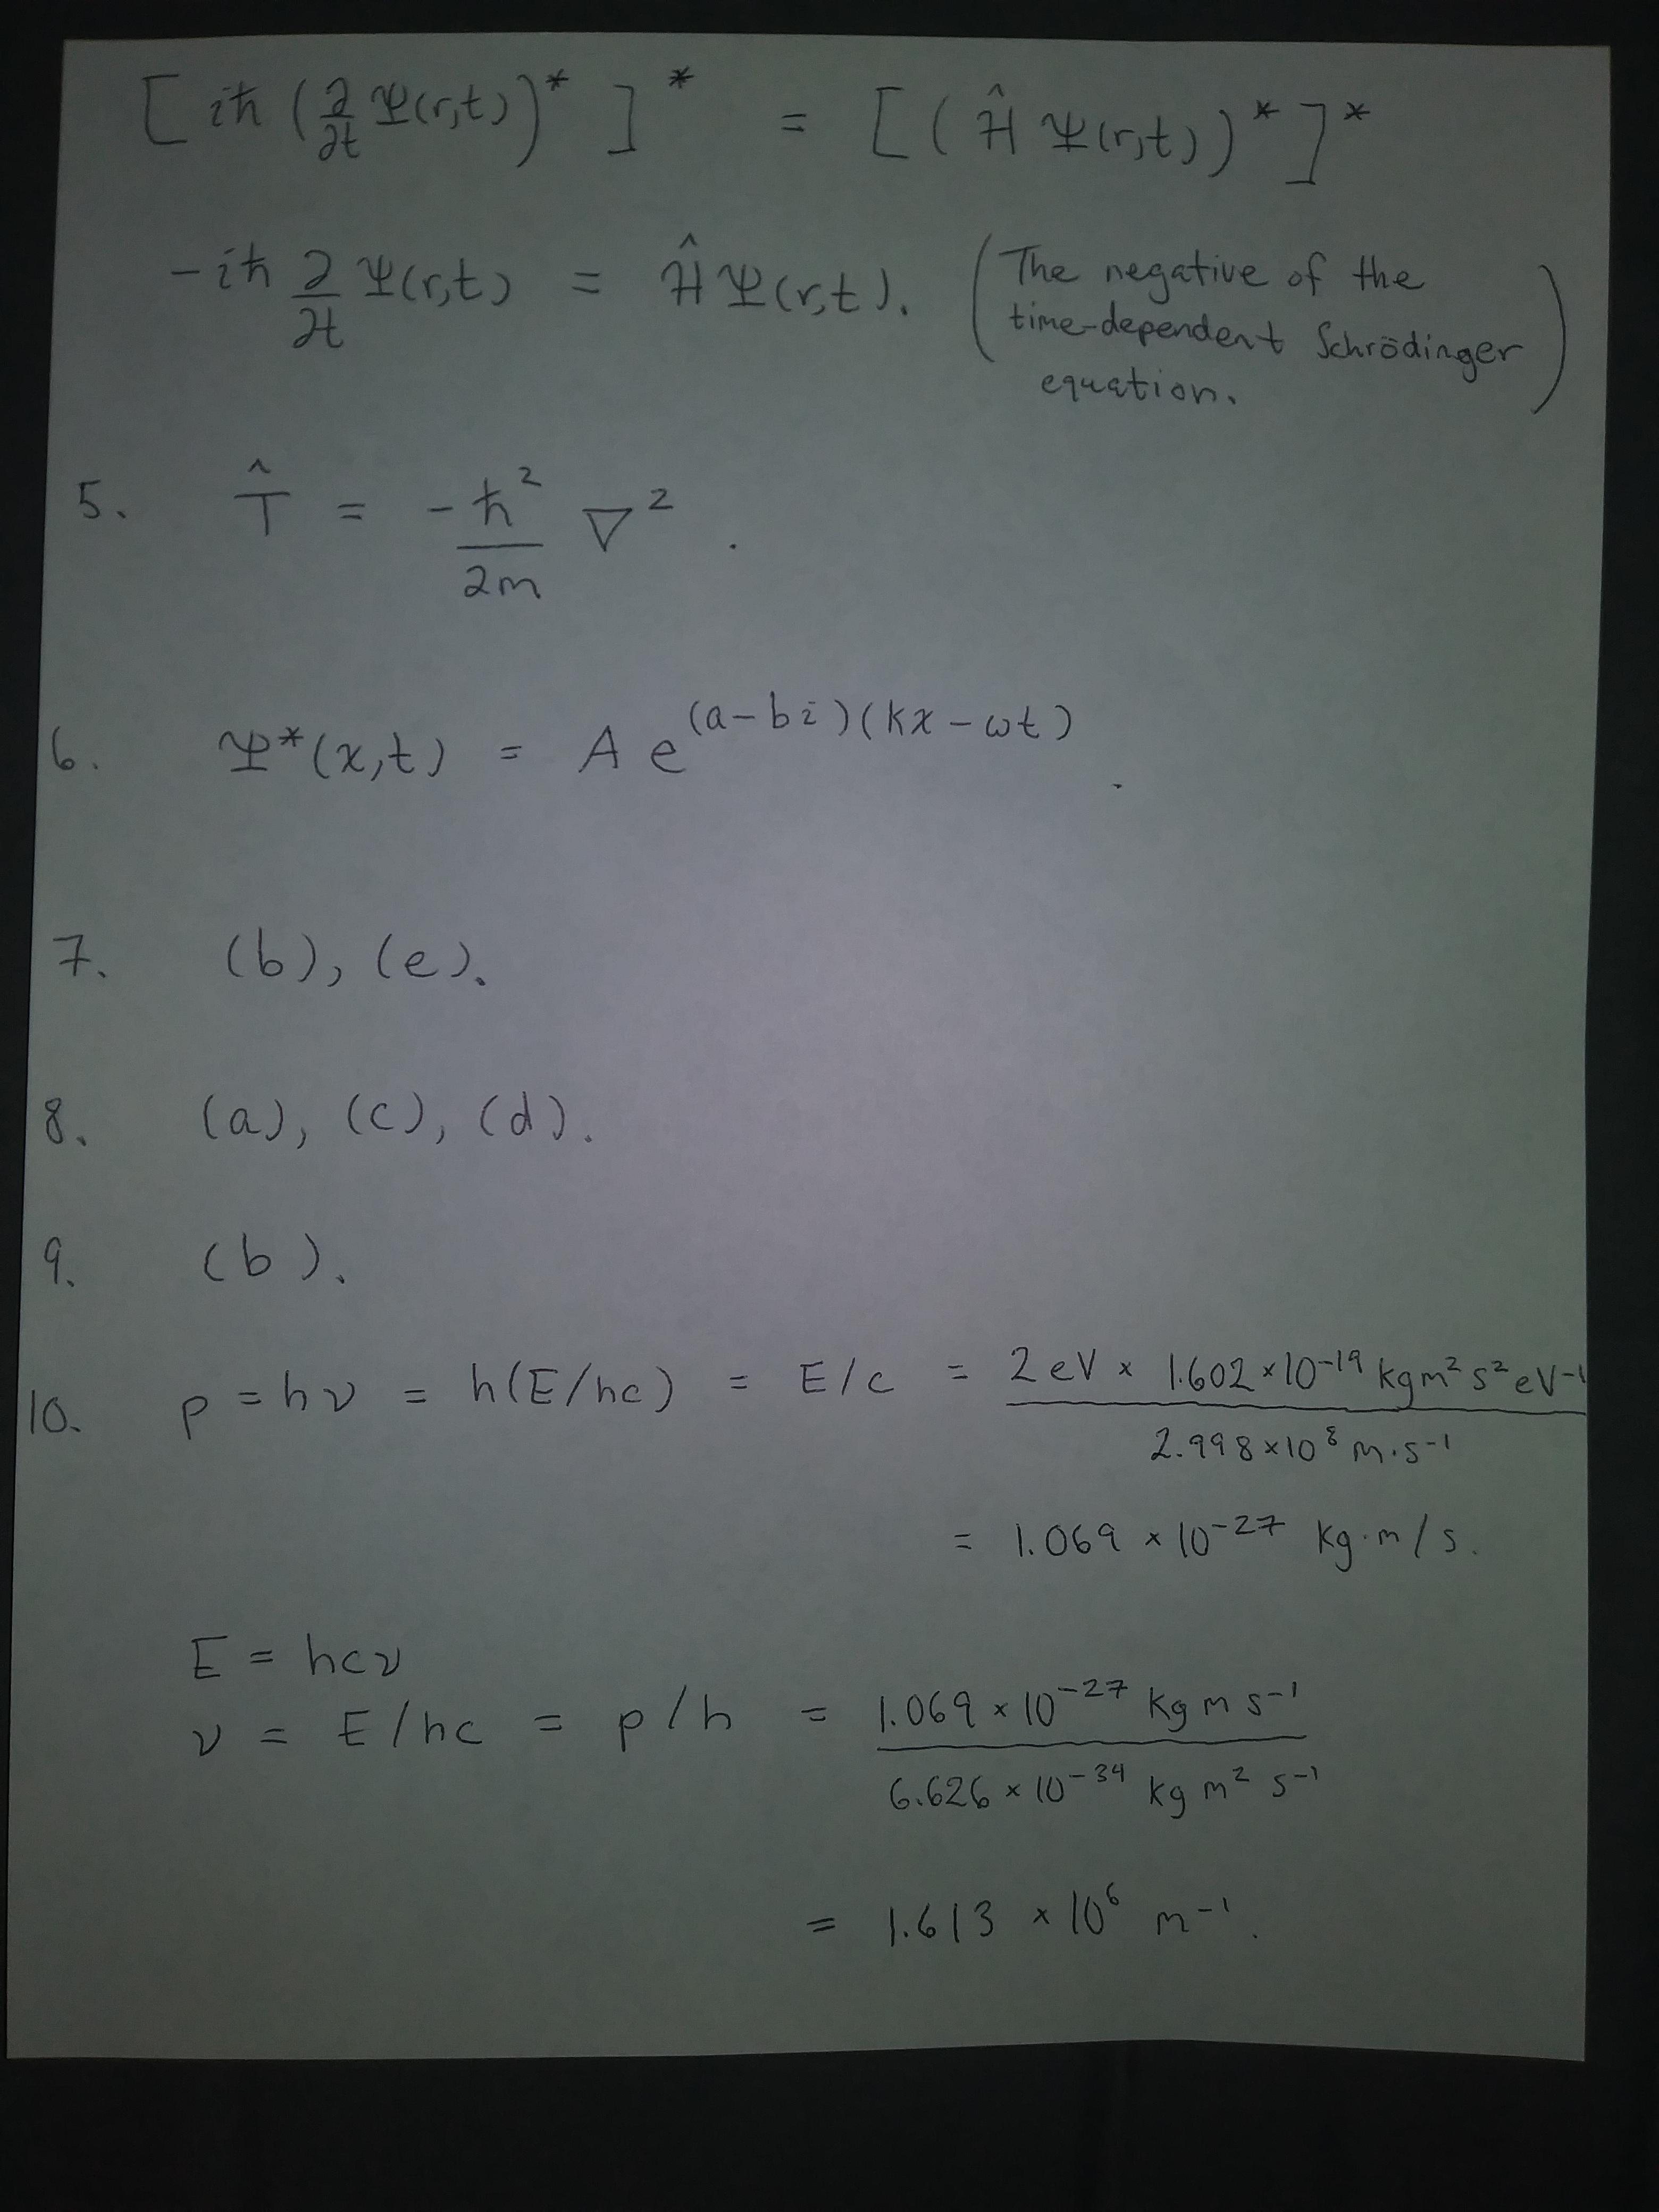 [ iħ (∂/∂t Ψ(r,t))* ]* = [ ( Ĥ Ψ(r,t) )* ]*
-iħ ∂/∂t Ψ(r,t) = Ĥ Ψ(r,t). (The negative of the
time-dependent Schrödinger
equation.)
5. T̂ = -ħ²/2m ∇².
6. Ψ*(x,t) = A e^(a-bi)(kx-ωt).
7. (b), (e).
8. (a), (c), (d).
9. (b).
10. p = hν = h(E/hc) = E/c = 2 eV × 1.602×10⁻¹⁹ kg m² s² eV⁻¹
2.998×10⁸ m·s⁻¹
= 1.069 × 10⁻²⁷ kg·m/s.
E = hcν
ν = E/hc = p/h = 1.069 × 10⁻²⁷ kg m s⁻¹
6.626 × 10⁻³⁴ kg m² s⁻¹
= 1.613 × 10⁶ m⁻¹.